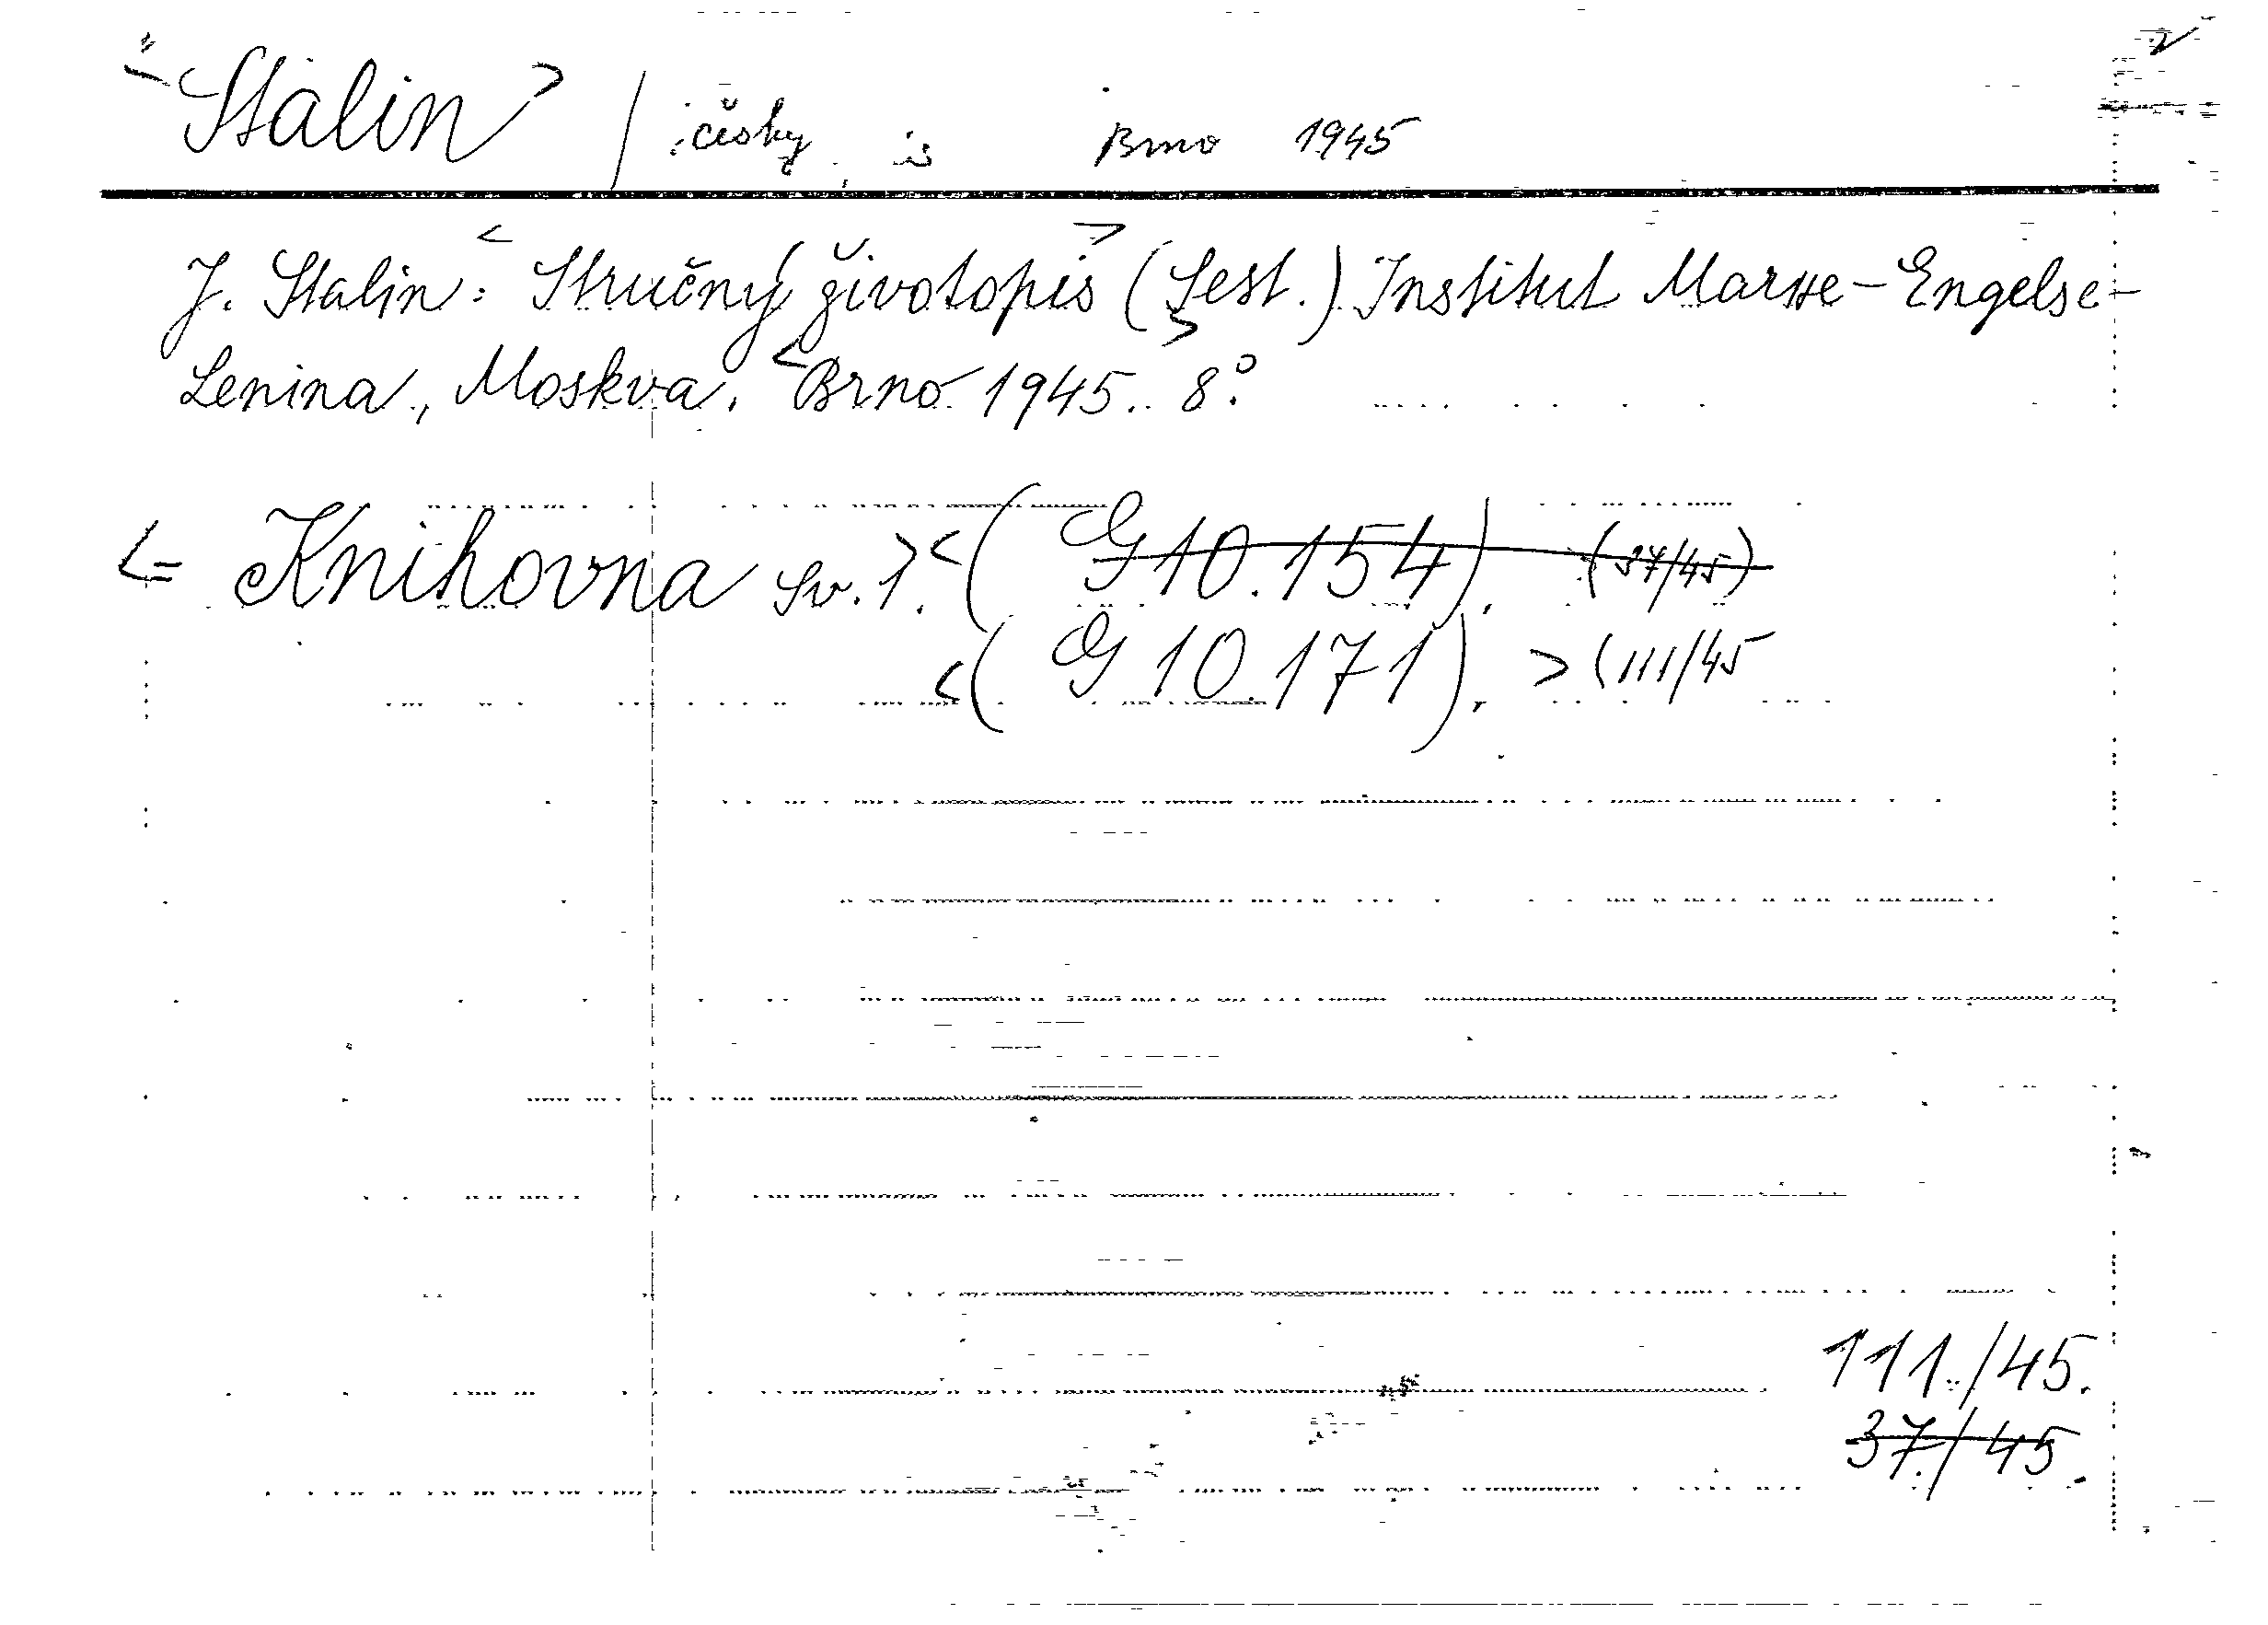 <Stalin> / česky, is Brno 1945
J. Stalin: <Stručný životopis> (Sest.) Institut Marxe-Engelse-
Lenina, Moskva. <Brno> 1945. 8°.
<= Knihovna sv. 1.> <(G 10.154). (37/45)
<(G 10.171). > (111/45
111./45.
37./45.